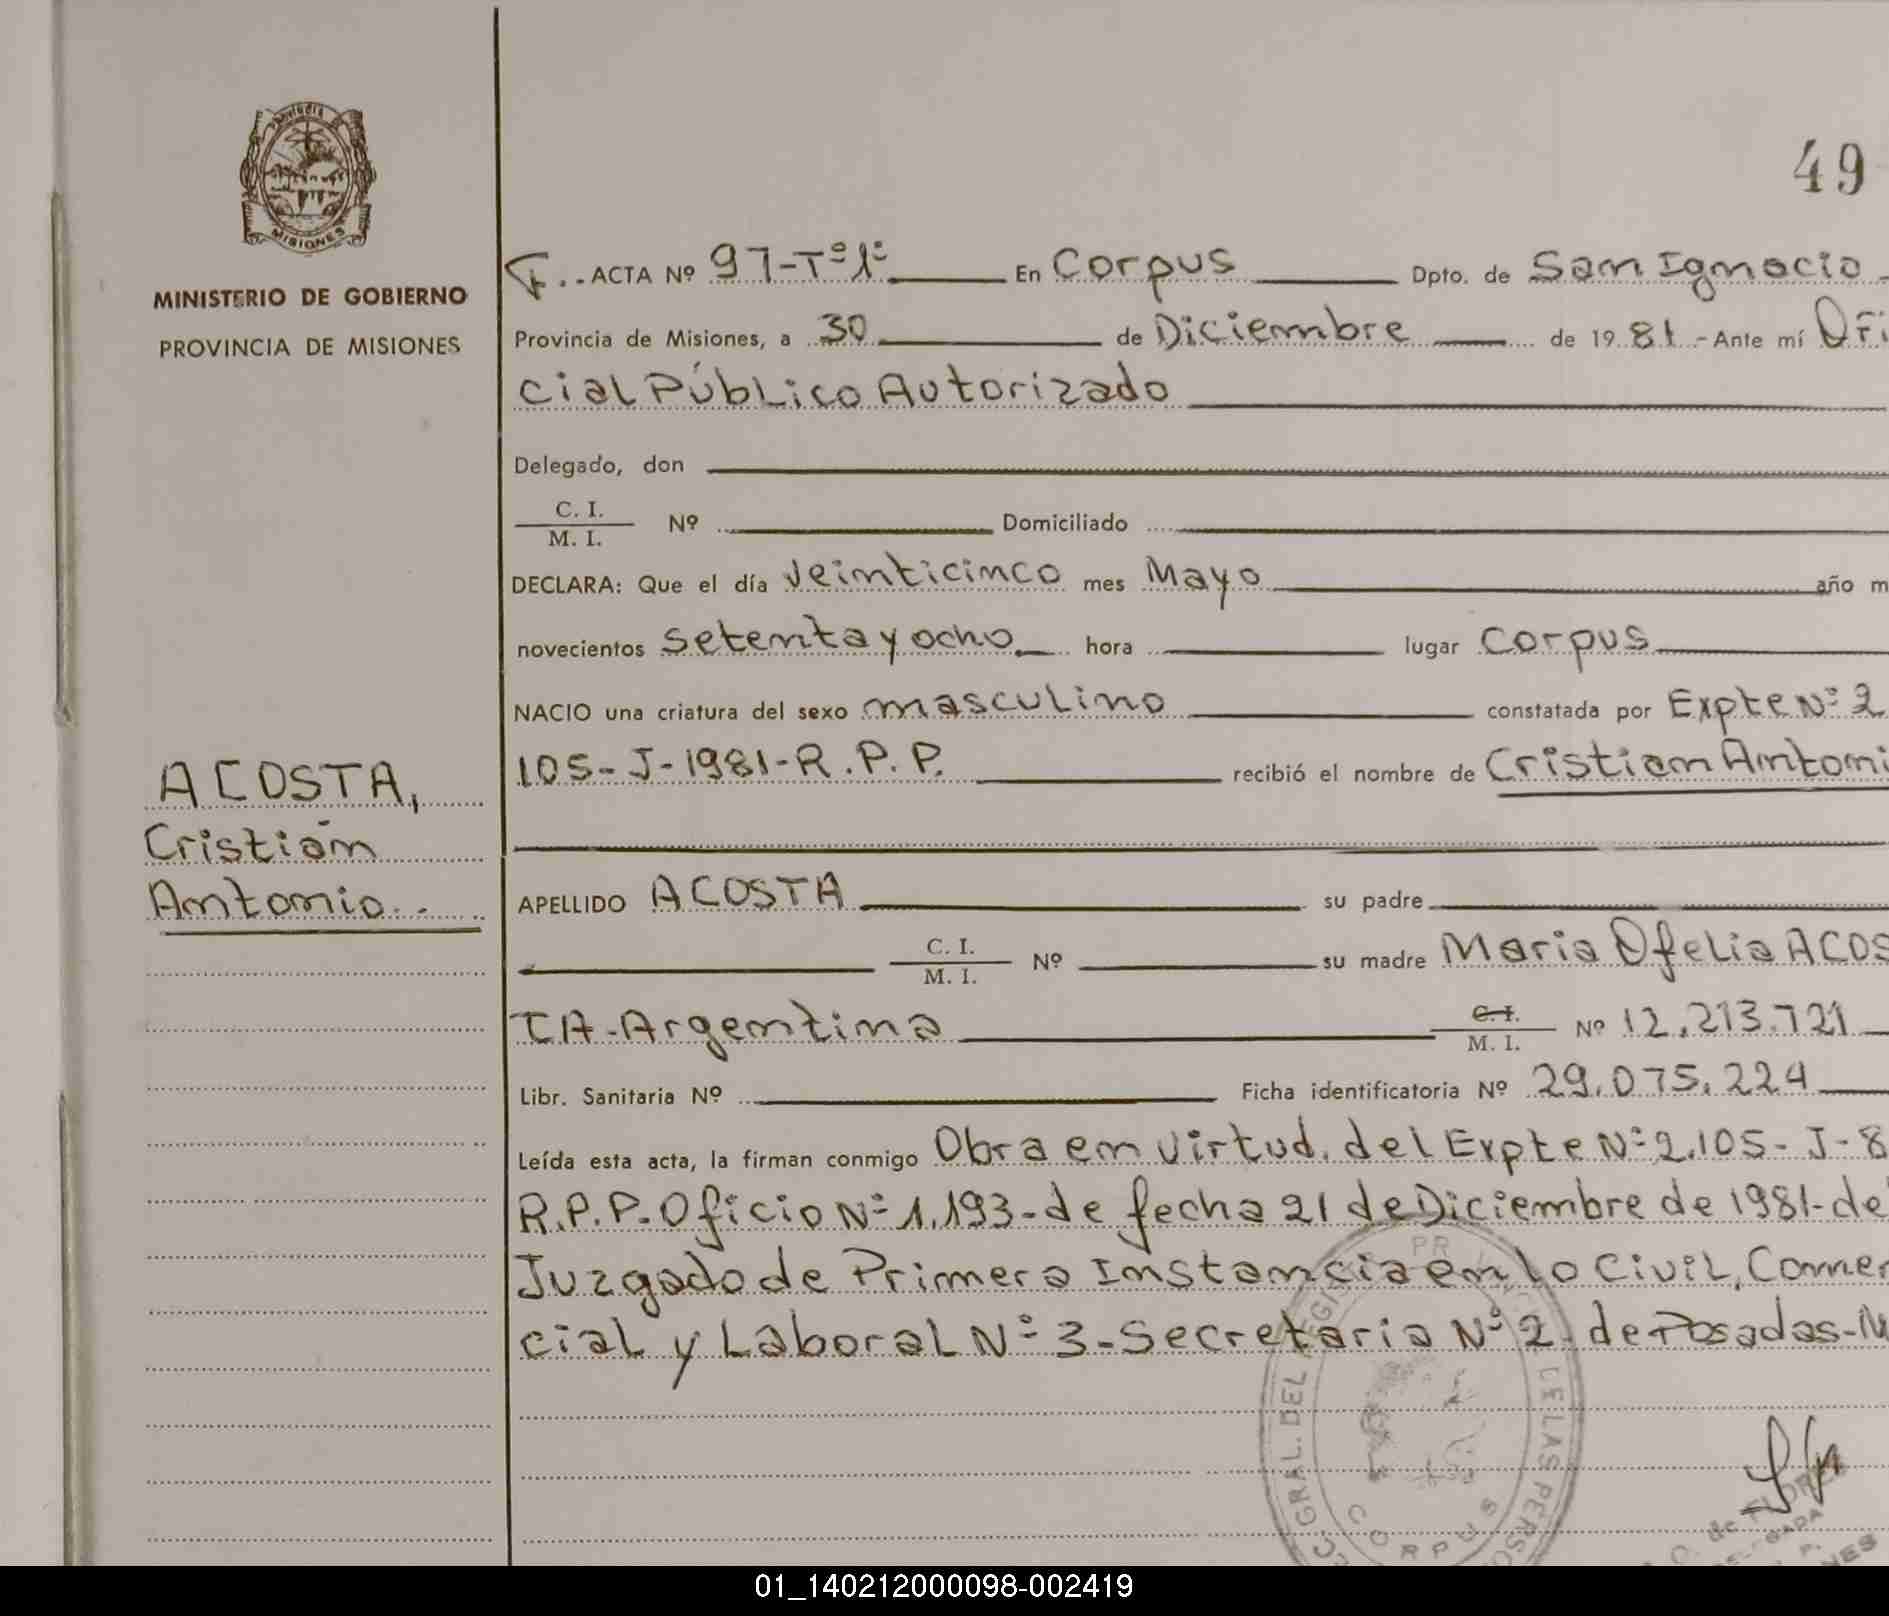 Provincia
MISIONES
MINISTERIO DE GOBIERNO
PROVINCIA DE MISIONES
ACOSTA,
Cristián
Antonio..
49
F.. ACTA Nº 97-Tº1º En Corpus Dpto. de San Ignacio
Provincia de Misiones, a 30 de Diciembre de 1981.- Ante mí Ofi
cial Público Autorizado
Delegado, don
C. I.
M. I. Nº Domiciliado
DECLARA: Que el día veinticinco mes Mayo año m
novecientos setenta y ocho hora lugar Corpus
NACIO una criatura del sexo masculino constatada por Expte Nº 2
105-J-1981-R.P.P. recibió el nombre de Cristian Antoni
APELLIDO ACOSTA su padre
C. I.
M. I. Nº su madre Maria Ofelia ACOS
TA-Argentina C. I.
M. I. Nº 12.213.721
Libr. Sanitaria Nº Ficha identificatoria Nº 29.075.224
Leída esta acta, la firman conmigo Obra en virtud del Expte Nº 2.105-J-8
R.P.P. Oficio Nº 1.193-de fecha 21 de Diciembre de 1981-de
Juzgado de Primera Instancia en lo Civil, Comer
cial y Laboral Nº 3-Secretaria Nº 2-de Posadas-M
GRAL. DEL REGIS PROVINCIAL DE LAS PERSO
CORPUS
de FLOR
01_140212000098-002419